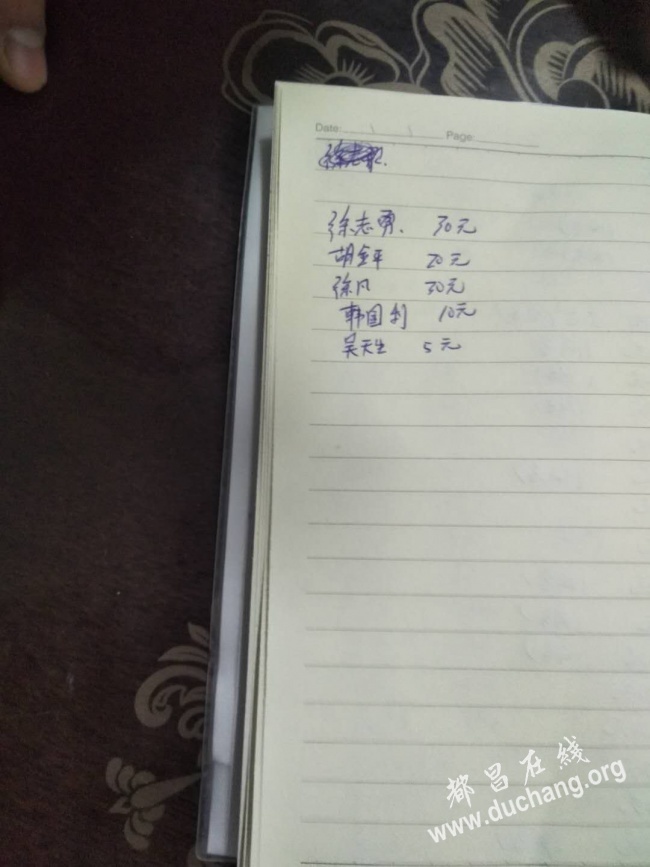 Date: Page:
徐志勇. 30元
胡金平 20元
徐凡 30元
韩国利 10元
吴天生 5元
都昌在线
www.duchang.org